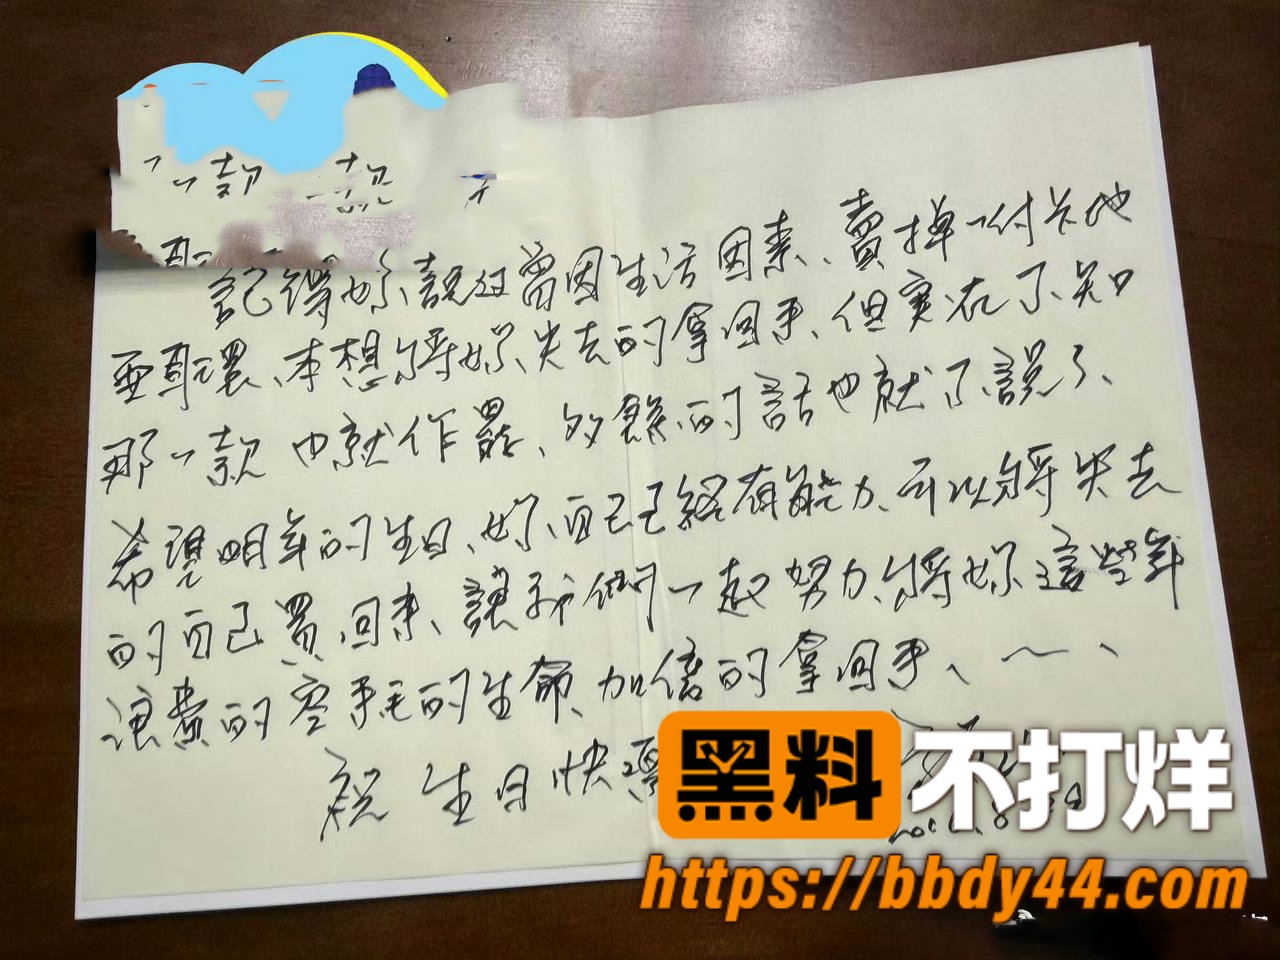 記得妳、說過曾因生活因素、賣掉一付卡地
亜耳環、本想將妳、失去的拿回來、但實在不知
那一款 也就作罷、多餘的話也就不說了、
希望明年的生日、妳、自己已經有能力、可以將失去
的自己買回來、讓我們一起努力、將妳這些年
浪費的 的生命、加倍的拿回來、
祝 生日快
黑料不打烊
https://bbdy44.com